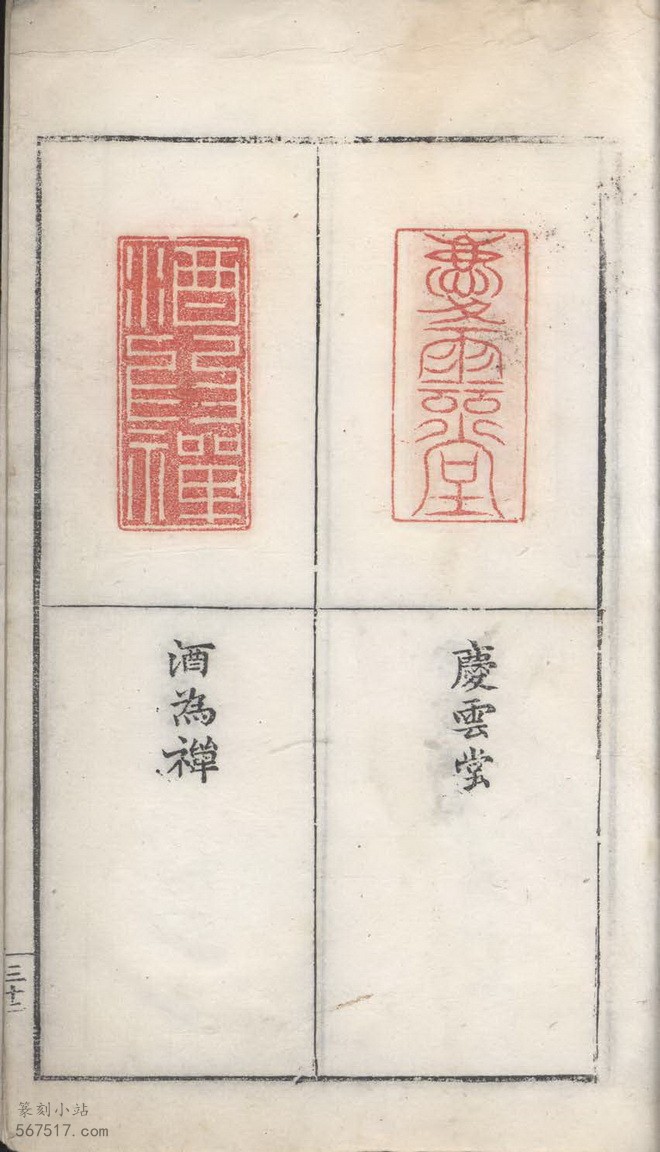 慶雲堂
酒為禪
慶雲堂
酒為禪
三十二
篆刻小站
567517.com